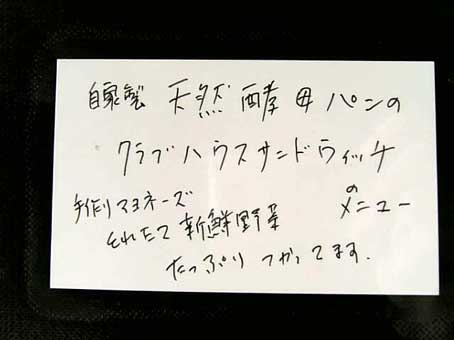 自家製 天然酵母パンの
クラブハウスサンドウィッチ
のメニュー
手作りマヨネーズ
とれたて新鮮野菜
たっぷりつかってます.